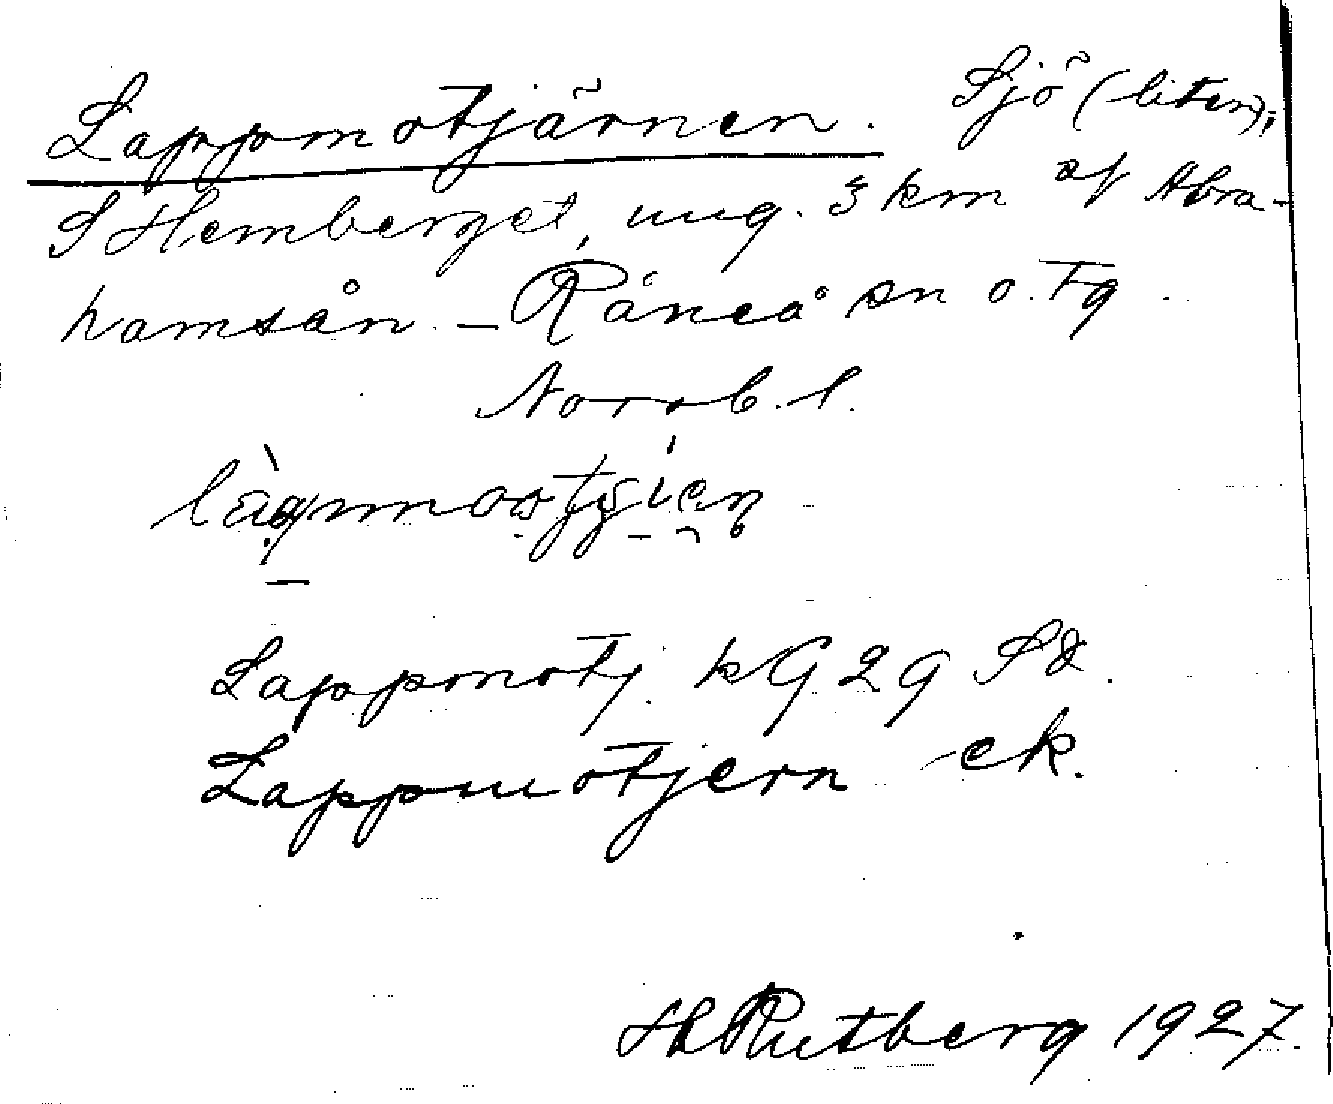 Lappmotjärnen. Sjö (liten),
S Hemberget, ung. 3 km af Abra-
hamsån. – Råneå sn o. tg
Norrb. l.
Lappmotj. kG 29 Sd.
Lappmotjern ek.
HRutberg 1927.